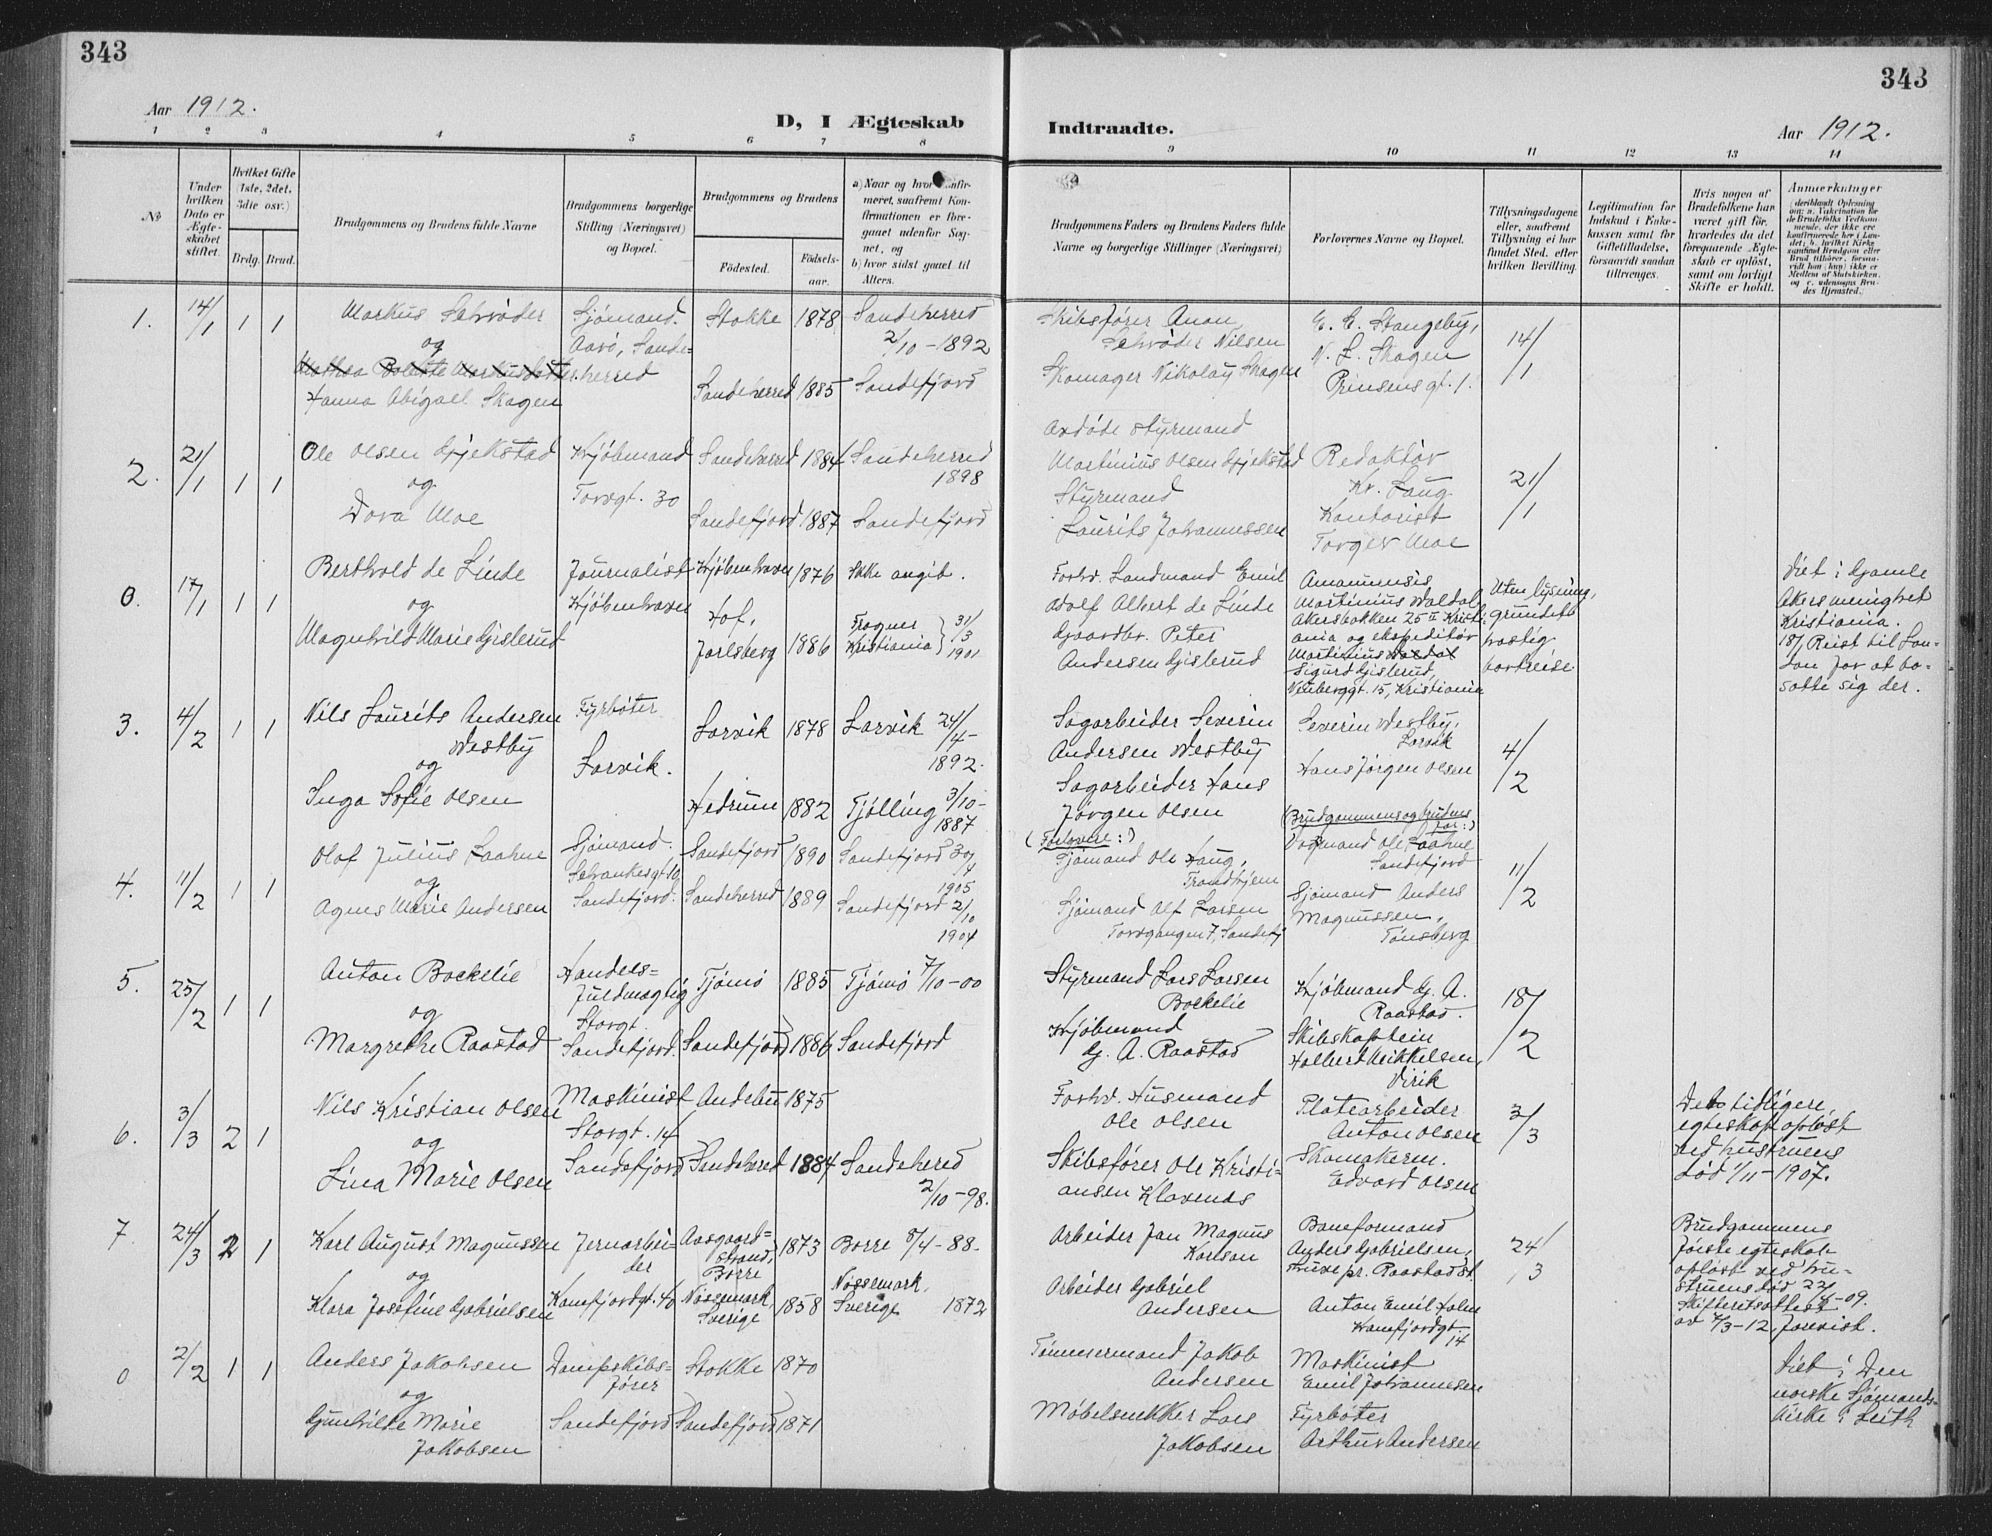 343
343
Aar 1912.
D, I Ægteskab
Indtraadte.
Aar 1912.
1 2 3 4 5 6 7 8
9 10 11 12 13 14
No
Under hvilken Dato er Ægteskabet stiftet.
Hvilket Gifte (1ste, 2det, 3die osv.)
Brdg. Brud.
Brudgommens og Brudens fulde Navne
Brudgommens borgerlige Stilling (Næringsvei) og Bopæl.
Brudgommens og Brudens
Fødested.
Fødselsaar.
a) Naar og hvor konfirmeret, saafremt Konfirmationen er foregaaet udenfor Sognet, og
b) hvor sidst gaaet til Alters.
Brudgommens Faders og Brudens Faders fulde Navne og borgerlige Stillinger (Næringsvei)
Forlovernes Navne og Bopæl.
Tillysningsdagene eller, saafremt Tillysning ei har fundet Sted, efter hvilken Bevilling.
Legitimation for Indskud i Enkekassen samt for Giftetilladelse, forsaavidt saadan tiltrænges.
Hvis nogen af Brudefolkene har været gift før, hvorledes da det foregaaende Ægteskab er opløst, samt om lovligt Skifte er holdt.
Anmærkninger
(deriblandt Oplysning om: a. Vakcination for de Brudefolks Vedkommende, der ikke ere konfirmerede her i Landet; b. hvilket Kirkesamfund Brudgom eller Brud tilhører, forsaavidt han (hun) ikke er Medlem af Statskirken, og c. udensogns Brudes Hjemsted.)
1. 14/1 1 1 Markus Schrøder
og
Hanna Abigael Skagen
Sjømand.
Aarø, Sande=
herred
Stokke 1878 Sandeherred
2/10-1892
Sandeherred 1885 Sandefjord
Skibsfører Anon
Schrøder Nilsen
Skomager Nikolay Skagen
E. C. Stangeby,
N. L. Skagen
Prinsensgt. 1.
14/1
2. 21/1 1 1 Ole Olsen Gjekstad
og
Dora Moe
Kjøbmand
Torvgt. 30
Sandeherred 1884 Sandeherred
1898
Sandefjord 1887 Sandefjord
Avdøde Styrmand
Martinius Olsen Gjekstad
Styrmand
Laurits Johannessen
Redaktør
Kr. Haug
Kontorist
Torger Moe
21/1
0. 17/1 1 1 Berthold de Linde
og
Magnhild Marie Gislerud
Journalist
Kjøbenhavn
Kjøbenhavn 1876 Ikke angit.
Hof,
Jarlsberg 1886
Frogner
Kristiania } 31/3 1901
Forhv. Landmand Emil
Adolf Albert de Linde
Gaardbr. Peter
Andersen Gislerud
Amanuensis
Martinius Waldal
Akersbakken 25 II Kristi-
ania og ekspeditør
Martinius Waldal
Sigurd Gislerud,
Neuberggt. 15, Kristiania
Uten lysning,
grundet
hastig
bortreise
Viet i Gamle
Akers menighet
Kristiania.
18/1 Reist til Lon-
don for at bo-
sætte sig der.
3. 4/2 1 1 Nils Laurits Andersen
Westby
og
Inga Sofie Olsen
Fyrbøter
Larvik.
Larvik 1878 Larvik 24/4-
1892.
Hedrum 1882 Tjølling 3/10-
1887
Sagarbeider Severin
Andersen Westby
Sagarbeider Hans
Jørgen Olsen
Severin Westby,
Larvik
Hans Jørgen Olsen
4/2
4. 11/2 1 1 Olaf Julius Laahne
og
Agnes Marie Andersen
Sjømand.
Schankesgt 10,
Sandefjord.
Sandefjord 1890 Sandefjord 30/4
1905
Sandeherred 1889 Sandefjord 2/10
1904
(Forlovere:)
Sjømand Ole Haug,
Trondhjem
Sjømand Alf Larsen
Torvgangen 7, Sandefj
(Brudgommens og brudens
far:)
Vognmand Ole Laahne
Sandefjord
Sjømand Anders
Magnussen,
Tønsberg
11/2
5. 25/2 1 1 Anton Boekelie
og
Margrethe Raastad
Handels=
fuldmægtig
Storgt.
Sandefjord.
Tjømø 1885 Tjømø 7/10-00
Sandefjord 1886 Sandefjord
Styrmand Lars Larsen
Boekelie
Kjøbmand
G. A. Raastad
Kjøbmand G. A.
Raastad.
Skibskaptein
Halbert Mikkelsen,
Virik
18/2
6. 3/3 2 1 Nils Kristian Olsen
og
Lina Marie Olsen
Maskinist
Storgt. 14
Sandefjord
Andebu 1875
Sandeherred 1884 Sandeherred
2/10-98.
Forhv. Husmand
Ole Olsen
Skibsfører Ole Kristi-
ansen Klavenæs
Platearbeider
Anton Olsen
Skomakerm.
Edvard Olsen
3/3
Det tidligere
egteskap opløst
ved hustruens
død 1/11-1907.
7. 24/3 2 1 Karl August Magnussen
og
Klara Josefine Gabrielsen
Jernarbei-
der
Kamfjordgt. 40
Aasgaard=
strand,
Borre 1873 Borre 8/4-88.
Nössemark,
Sverige 1858
Nössemark,
Sverige 1872
Arbeider Jan Magnus
Karlsson
Arbeider Gabriel
Andersen
Baneformand
Anders Gabrielsen,
pr. Raastad st.
Anton Emil Holm
Kamfjordgt.
14
24/3
Brudgommens
første egteskap
opløst ved hu-
struens død 22/4-09.
Skifteretsattest
av 4/3-12 forevist.
0 2/2 1 1 Anders Jakobsen
og
Gunhilde Marie
Jakobsen
Dampskibs-
fører
Sandefjord
Stokke 1870
Sandefjord 1871
Tømmermand Jakob
Andersen
Møbelsnekker Lars
Jakobsen
Maskinist
Emil Johannesen
Fyrbøter
Arthur Andersen
Viet i Den
norske Sjømands-
kirke i Leith